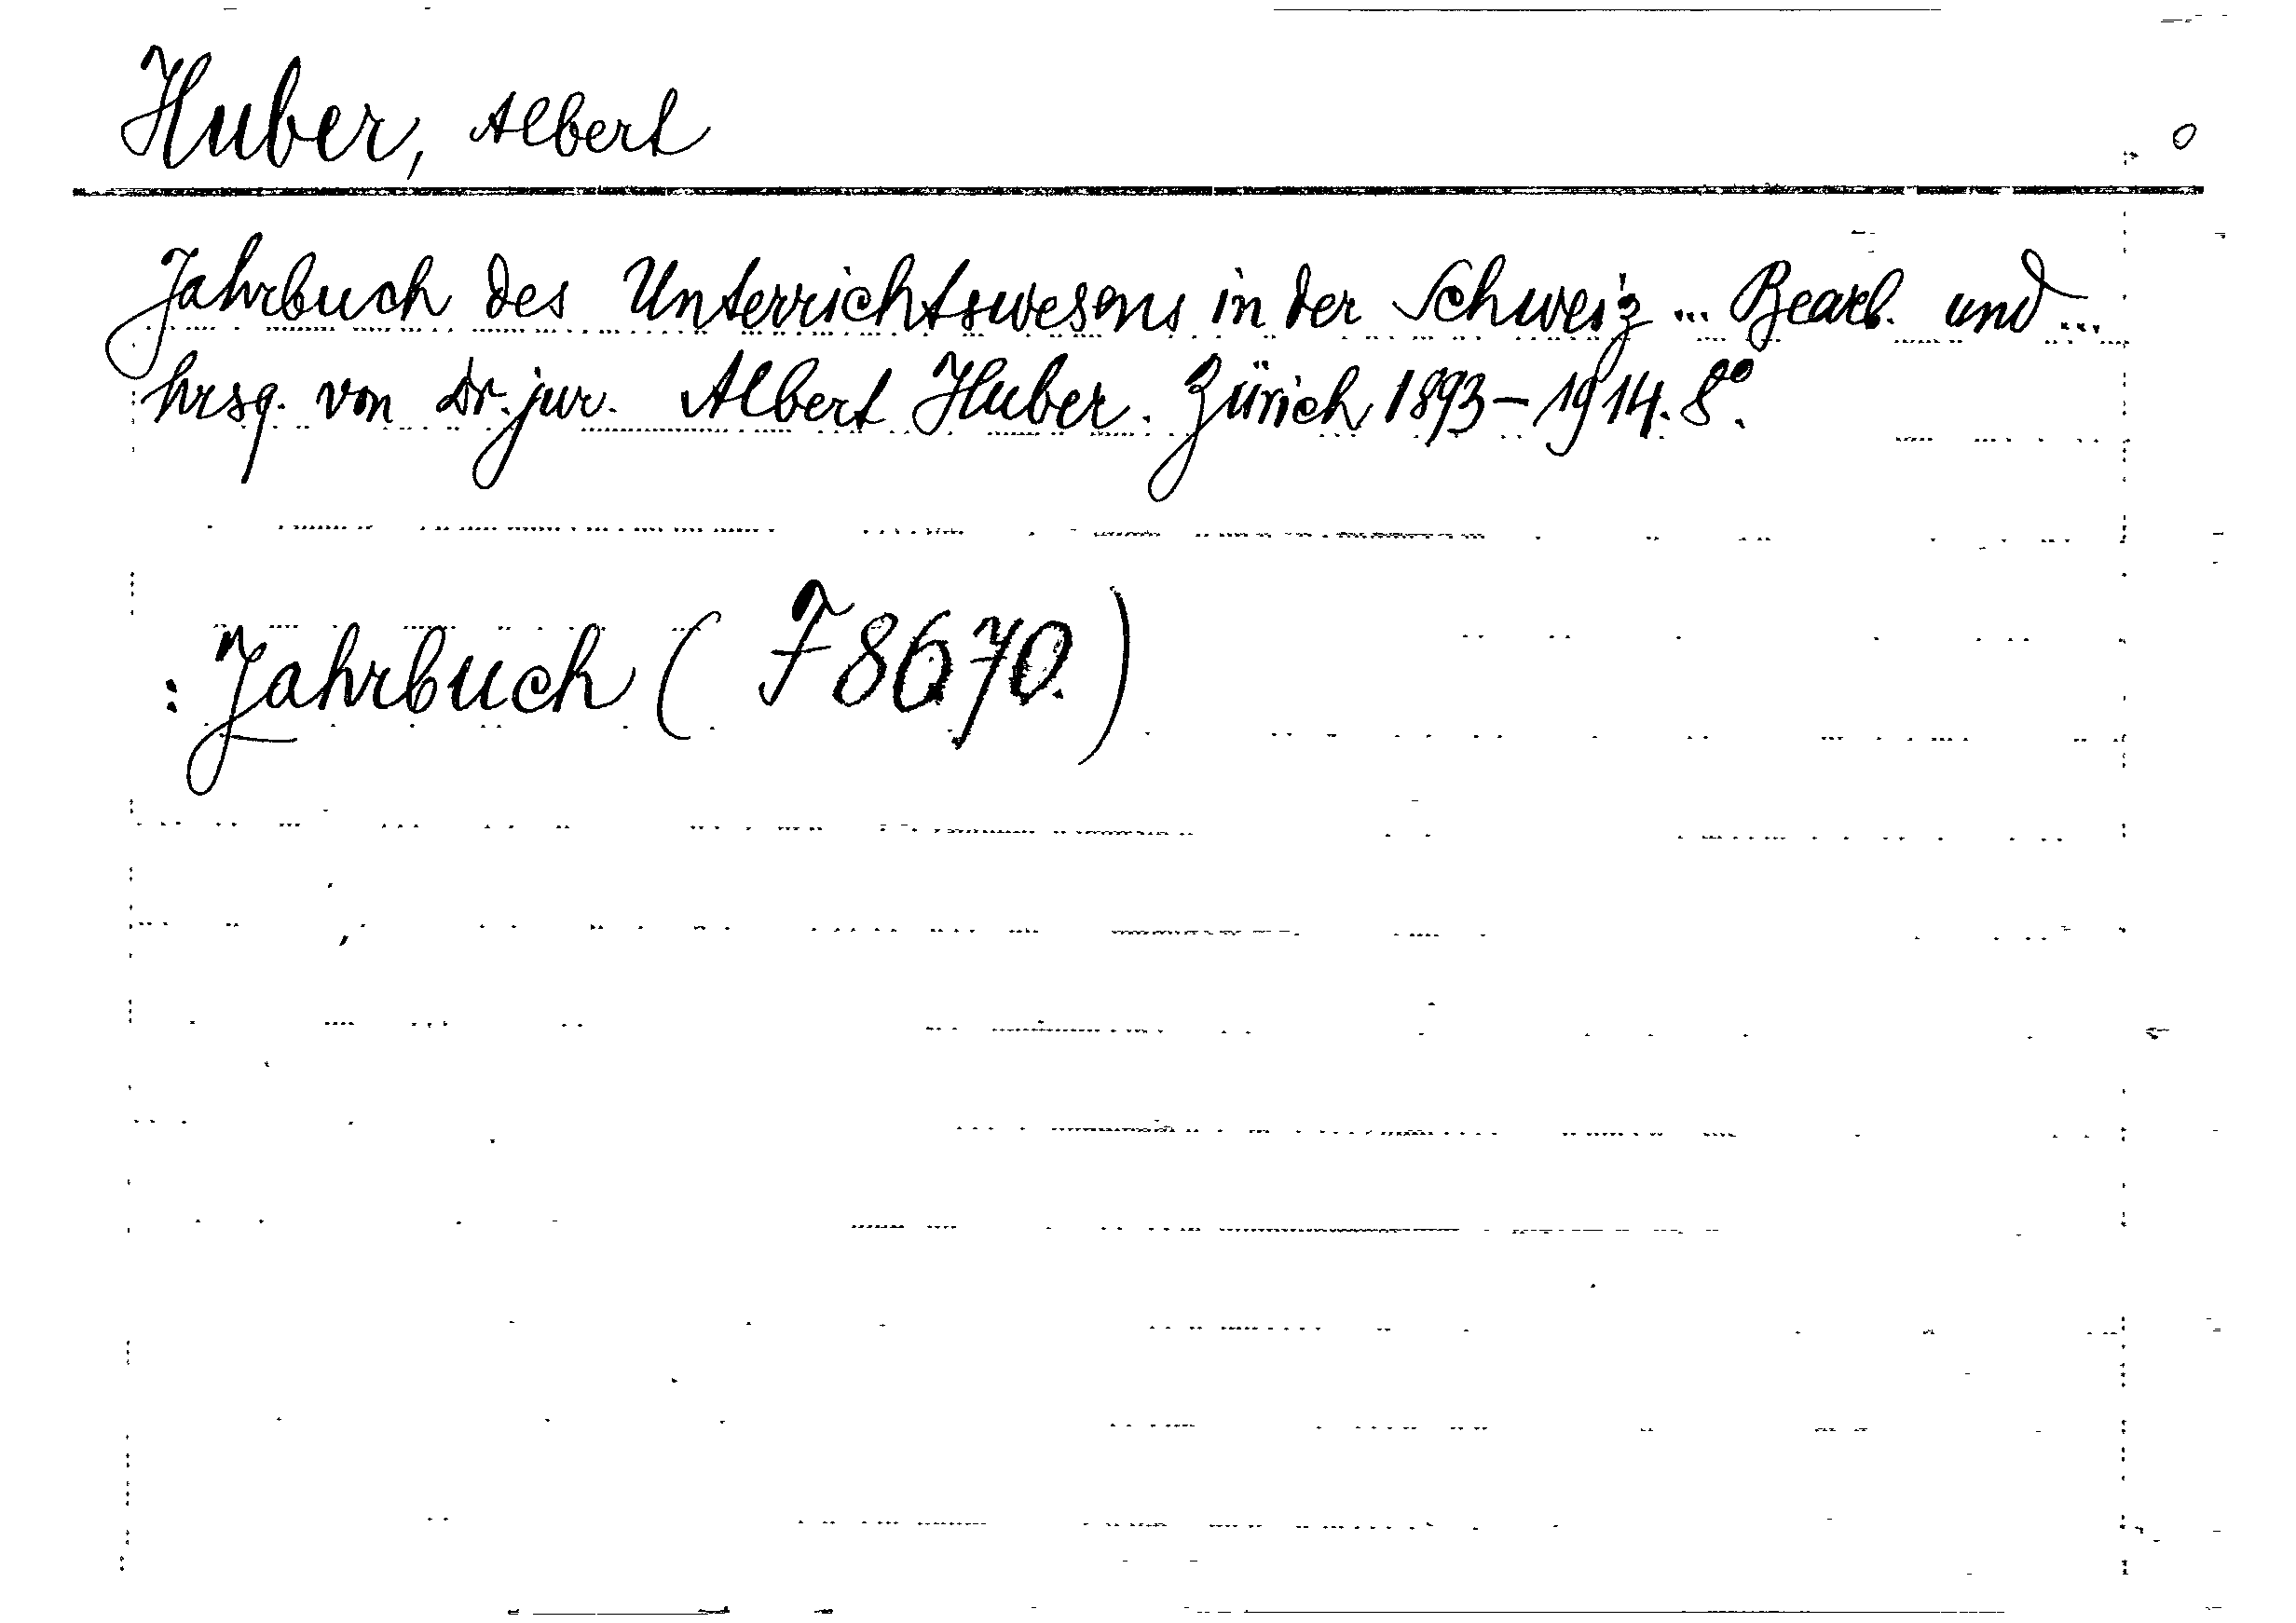 Huber, Albert
Jahrbuch des Unterrichtswesens in der Schweiz ... Bearb. und ...
hrsg. von Dr. jur. Albert Huber. Zürich 1893-1914. 8°.
: Jahrbuch ( F 8670 )